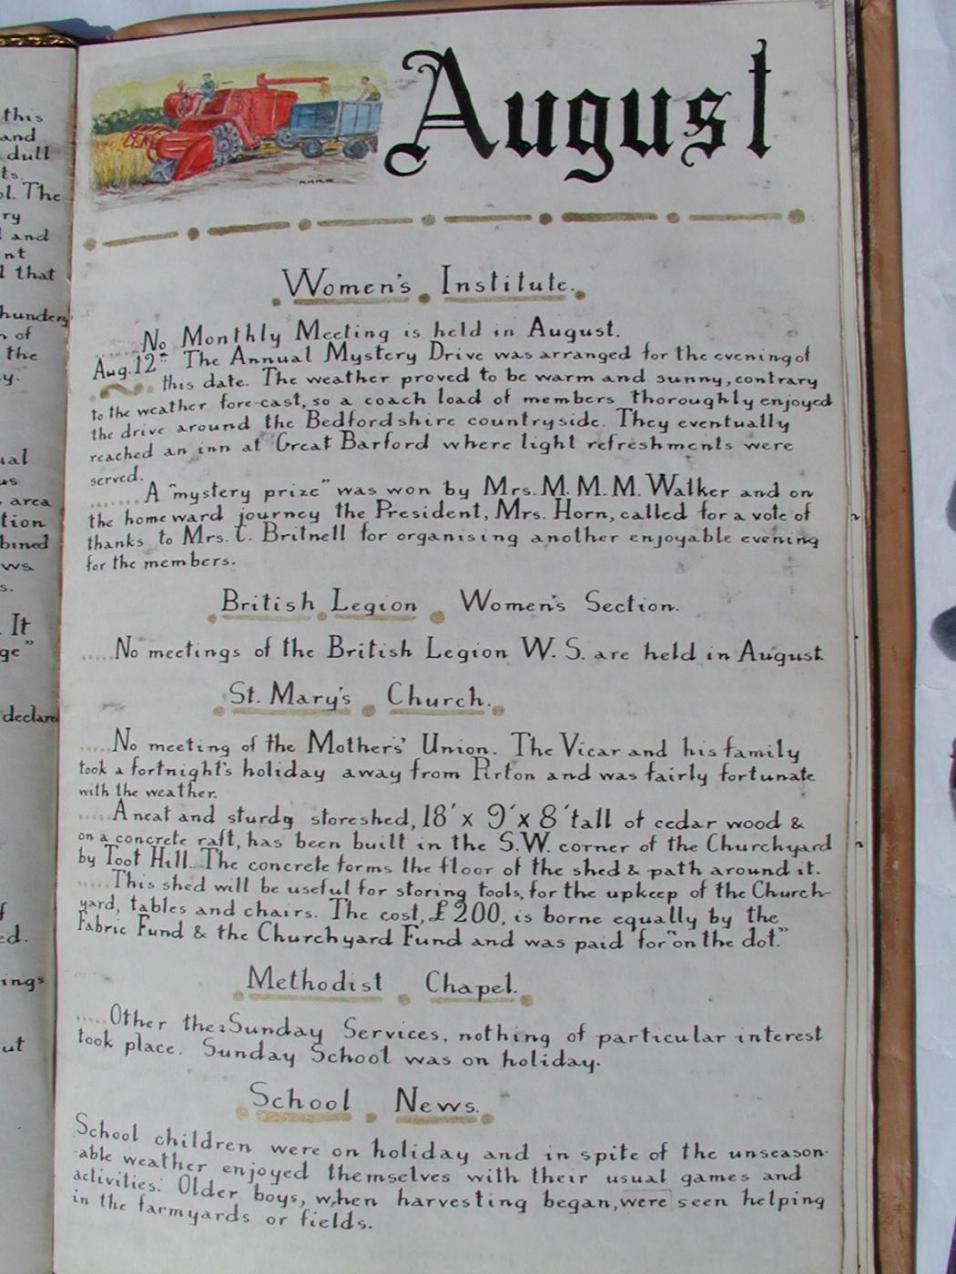 this
and
dull
ts.
ol. The
ry
and
nt
that
hunder
of
the
y.
ual
us
area
tion
bined
ws
s.
It
ge"
declare
f
ed.
ings
ut
August
Women's Institute.
No Monthly Meeting is held in August.
Aug. 12th The Annual Mystery Drive was arranged for the evening of
this date. The weather proved to be warm and sunny, contrary
to the weather fore-cast, so a coach load of members thoroughly enjoyed
the drive around the Bedfordshire countryside. They eventually
reached an inn at Great Barford where light refreshments were
served.
...... A "mystery prize" was won by Mrs. M. M. M. Walker and on
the homeward journey the President, Mrs. Horn, called for a vote of
thanks to Mrs. C. Britnell for organising another enjoyable evening
for the members.
British Legion Women's Section.
.....No meetings of the British Legion W. S. are held in August
St. Mary's Church.
.....No meeting of the Mothers' Union. The Vicar and his family
took a fortnight's holiday away from Pirton and was fairly fortunate
with the weather.
.....A neat and sturdy storeshed, 18' x 9' x 8' tall of cedar wood &
on a concrete raft, has been built in the S.W. corner of the Churchyard
by Toot Hill. The concrete forms the floor of the shed & path around it.
.....This shed will be useful for storing tools, for the upkeep of the Church-
yard, tables and chairs. The cost, £200, is borne equally by the
Fabric Fund & the Churchyard Fund and was paid for "on the dot."
Methodist Chapel.
.....Other the Sunday Services, nothing of particular interest
took place. Sunday School was on holiday.
School News.
School children were on holiday and in spite of the unseason-
able weather enjoyed themselves with their usual games and
activities. Older boys, when harvesting began, were seen helping
in the farmyards or fields.